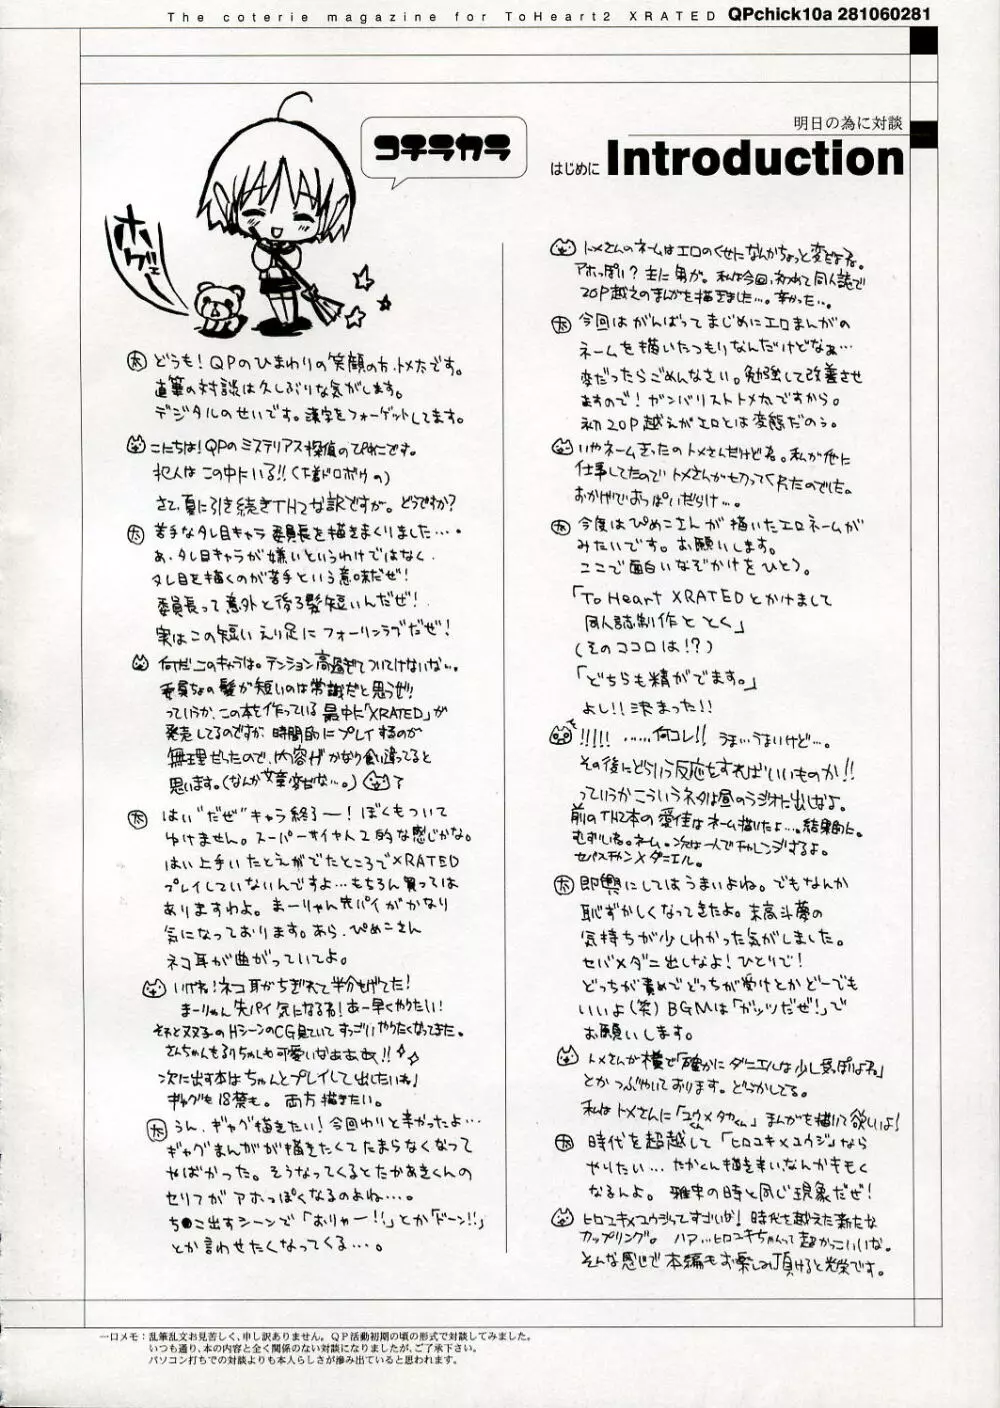 The coterie magazine for ToHeart2 XRATED QPchick10a 281060281
明日の為に対談
はじめに Introduction
コチラカラ
ホゲェー
太 どうも！QPのひまわりの笑顔の方、トメ太です。
直筆の対談は久しぶりな気がします。
デジタルのせいです。漢字をフォーゲットしてます。
こにちは！QPのミステリアス探偵のぴめこです。
犯人はこの中にいる!!(下着ドロボウの)
さて、夏に引き続きTH2な訳ですが。どうですか？
太 苦手なタレ目キャラ委員長を描きまくりました…・
あ、タレ目キャラが嫌いというわけではなく、
タレ目を描くのが苦手という意味だぜ！
委員長って意外と後ろ髪短いんだぜ！
実はこの短いえり足にフォーリンラブだぜ！
何だこのキャラは。テンション高過ぎてついてけないな…。
委員ちょの髪が短いのは常識だと思うぜ!!
っていうか、この本を作っている最中に「XRATED」が
発売してるのですが時間的にプレイするのが
無理だったので、内容がかなり食い違ってると
思います。(なんか文章変だな…。)？
太 はい“だぜ”キャラ終了ー！ぼくもついて
ゆけません。スーパーサイヤ人2的な感じかな。
はい上手いたとえがでたところでXRATED
プレイしていないんですよ…もちろん買っては
ありますわよ。まーりゃん先パイがかなり
気になっております。あら、ぴめこさん
ネコ耳が曲がっていてよ。
いけね！ネコ耳がちぎれて半分もげてた！
まーりゃん先パイ気になるね！あー早くやりたい！
それと双子のHシーンのCG見ていてすっごいやりたくなってきた。
さんちゃんもるりちゃんも可愛いなぁぁぁぁ!!
次に出す本はちゃんとプレイして出したいね」
ギャグも18禁も。両方描きたい。
太 うん、ギャグ描きたい！今回わりと辛かったよ…
ギャグまんがが描きたくてたまらなくなって
やばかった。そうなってくるとたかあきくんの
セリフがアホっぽくなるのよね…。
ち●こ出すシーンで「おりゃー!!」とか「ドーン!!」
とか言わせたくなってくる…。
トメさんのネームはエロのくせになんかちょっと変だよね。
アホっぽい？主に男が。私は今回、初めて同人誌で
20P越えのまんがを描きました…。辛かった…。
太 今回はがんばってまじめにエロまんがの
ネームを描いたつもりなんだけどなぁ…
変だったらごめんなさい。勉強して改善させ
ますので！ガンバリストトメ太ですから。
初20P越えがエロとは変態だのぅ。
いやネームきったのトメさんだけどね。私が他に
仕事してたのでトメさんが切ってくれたのでした。
おかげでおっぱいだらけ…。
太 今度はぴめこさんが描いたエロネームが
みたいです。お願いします。
ここで面白いなぞかけをひとつ。
「To Heart XRATEDとかけまして
同人誌制作ととく」
(そのココロは!?)
「どちらも精がでます。」
よし!!決まった!!
!!!!!……何コレ!!うま…うまいけど…。
その後にどういう反応をすればいいものか!!
っていうかこういうネタは昼のラジオに出しなよ。
前のTH2本の愛佳はネーム描いたよ…。結果的に。
むずいね。ネーム。次は一人でチャレンジするよ。
セバスチャン×ダニエル。
太 即興にしてはうまいよね。でもなんか
恥ずかしくなってきたよ。末高斗夢の
気持ちが少しわかった気がしました。
セバ×ダニ出しなよ！ひとりで！
どっちが責めでどっちが受けとかどーでも
いいよ(笑)BGMは「ガッツだぜ!」で
お願いします。
トメさんが横で「確かにダニエルは少し気ぽよね」
とかつぶやいております。どうかしてる。
私はトメさんに「ユウ×タカくん」まんがを描いて欲しいよ！
太 時代を超越して「ヒロユキ×ユウジ」なら
やりたい…たかくん描き辛い、なんかキモく
なるんよ。雅史の時と同じ現象だぜ！
ヒロユキ×ユウジってすごいな！時代を越えた新たな
カップリング。ハァ…ヒロユキちゃんって超かっこいいな。
そんな感じで本編もお楽しみ頂けると光栄です。
一口メモ：乱筆乱文お見苦しく、申し訳ありません。QP活動初期の頃の形式で対談してみました。
いつも通り、本の内容と全く関係のない対談になりましたが、ご了承下さい。
パソコン打ちでの対談よりも本人らしさが滲み出ていると思われます。